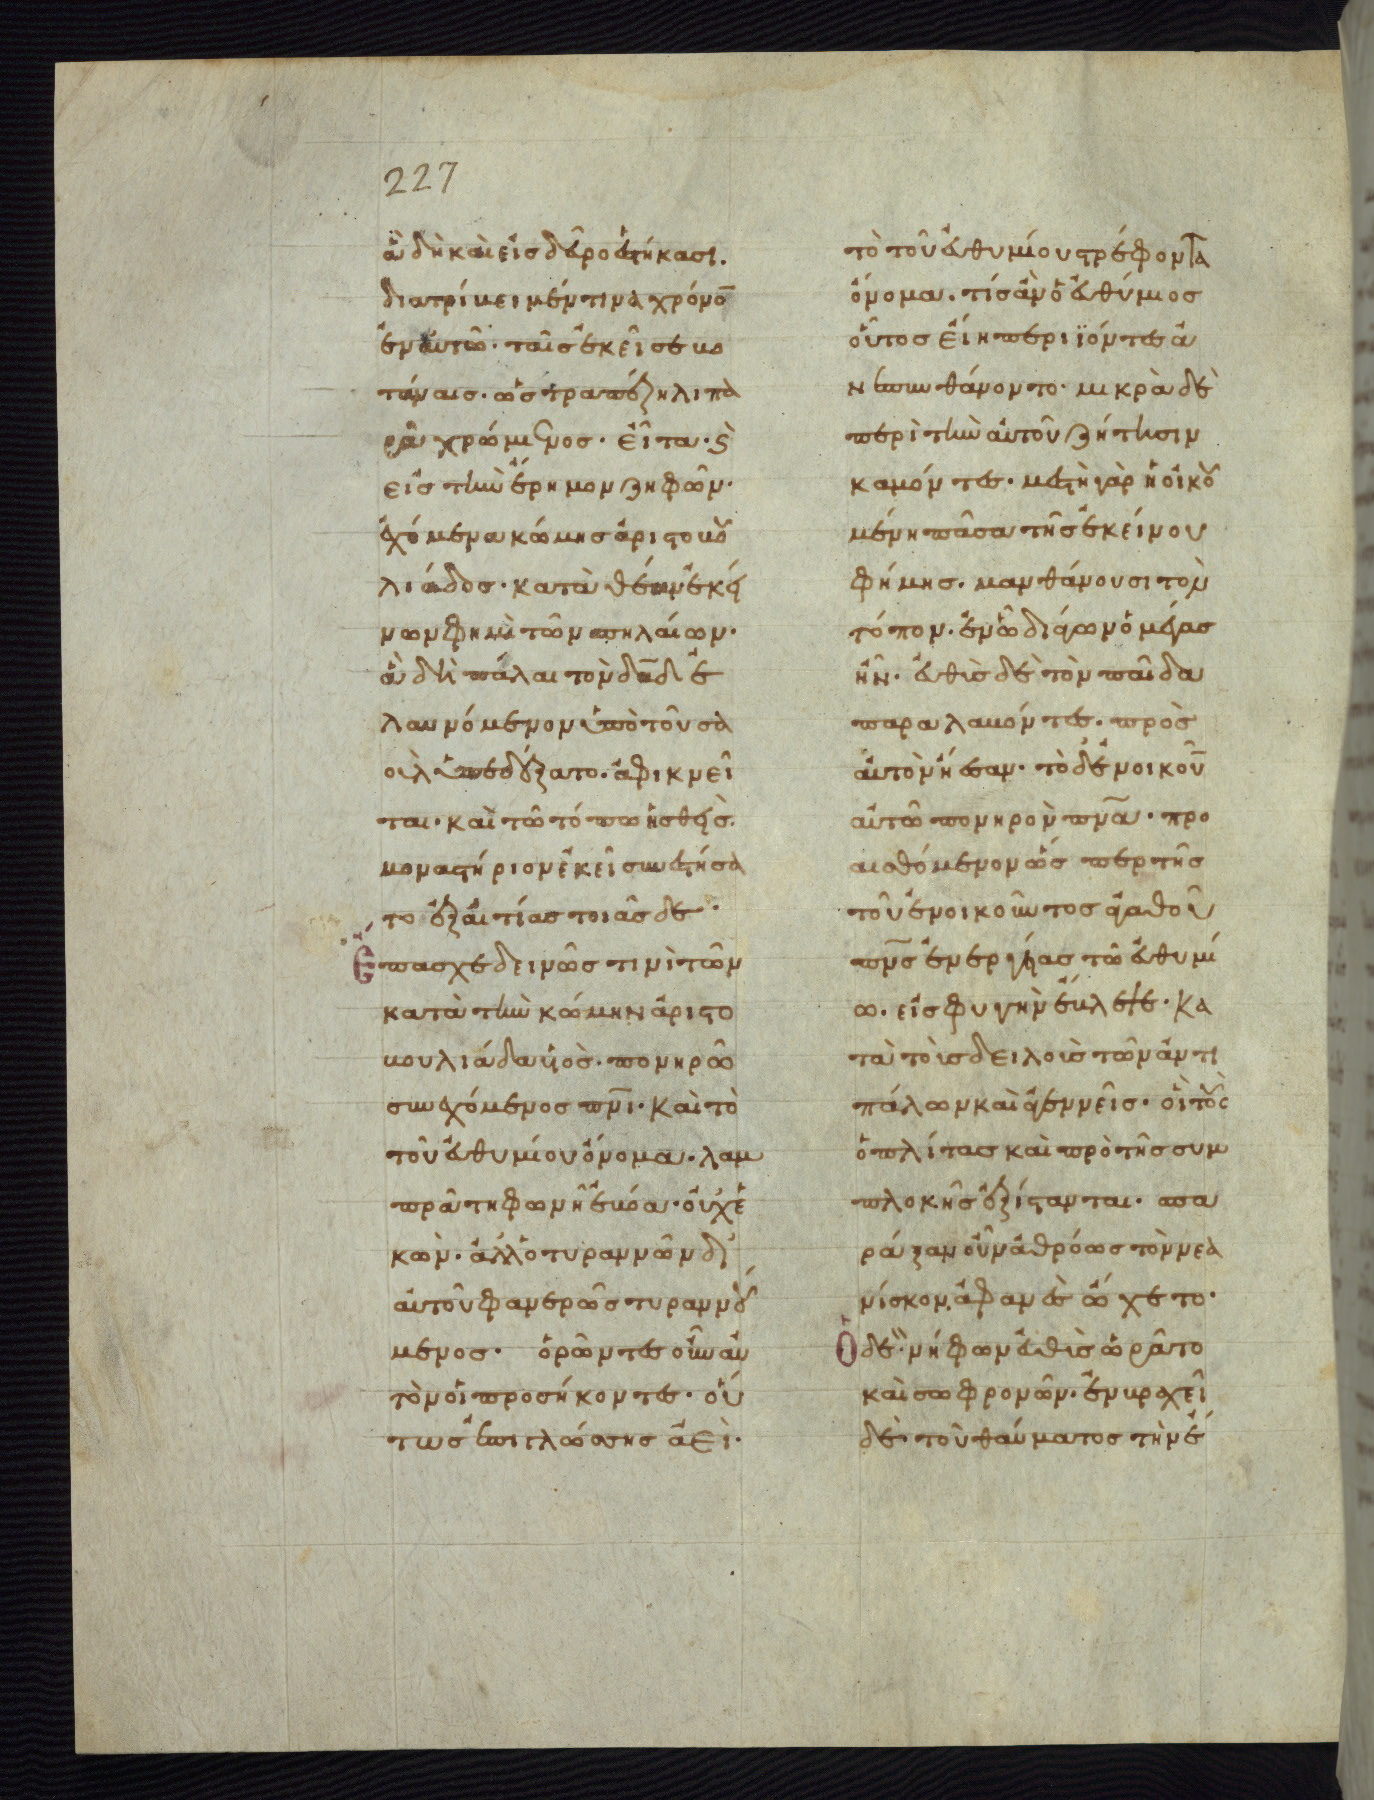 227
ἃ δὴ καὶ εἰς δεῦρο ἑστήκασι.
διατρίψει μέν τινα χρόνον
ἐν αὐτῶ· ταῖς ἐκεῖσε βο
τάναις· ὡς τραπέζη λιπα
ρᾶ χρώμενος· εἶτα· καὶ
εἰς τὴν ἔρημον ζηφῶν·
ἐχόμενα κώμης ἀριστοβου
λιάδος· κατὰ θέαν ἐκεί
νων φημὶ τῶν σπηλαίων·
ἃ δὴ πάλαι τὸν δαδ ἐ
λαυνόμενον ὑπὸ τοῦ σα
οὺλ ὑπεδέξατο· ἀφικνεῖ
ται· καὶ τῶ τόπω ἡσθείς·
μοναστήριον ἐκεῖ συνεστήσα
το ἐξ αἰτίας τοιᾶσδε·
Ἔπασχε δεινῶς τινὶ τῶν
κατὰ τὴν κώμην ἀριστο
βουλιάδα υἱὸς· πονηρῶ
συνεχόμενος πνι· καὶ τὸ
τοῦ εὐθυμίου ὄνομα· λαμ
πρᾶ τῆ φωνῆ ἐβόα· οὐχ ἑ
κὼν· ἀλλ' ὁ τυραννῶν δι'
αὐτοῦ φανερῶς τυραννού
μενος· ὁρῶντες οὖν αὐ
τὸν οἱ προσήκοντες· οὕ
τως ἐπὶ γλώσσης ἀεὶ·
τὸ τοῦ εὐθυμίου στρέφοντα
ὄνομα· τίς ἂν ὁ εὐθύμιος
οὗτος εἴη περιϊόντες ἀ
νεπυνθάνοντο· μικρὰ δὲ
περὶ τὴν αὐτοῦ ζήτησιν
καμόντες· μεστὴ γὰρ ἡ οἰκου
μένη πᾶσα τῆς ἐκείνου
φήμης· μανθάνουσι τὸν
τόπον· ἐν ὧ διάγων ὁ μέγας
ἦν· εὐθὺς δὲ τὸν παῖδα
παραλαβόντες· πρὸς
αὐτὸν ἤεσαν· τὸ δὲ ἐνοικοῦν
αὐτῶ πονηρὸν πνα· προ
αισθόμενον ὥσπερ τῆς
τοῦ ἐνοικοῦντος ἀγαθοῦ
πνς ἐνεργείας τῶ εὐθυμί
ω· εἰς φυγὴν ἔβλεπε· κα
τὰ τοὺς δειλοὺς τῶν ἀντι
πάλων καὶ ἀγεννεῖς· οἳ τοὺς
ὁπλίτας καὶ πρὸ τῆς συμ
πλοκῆς ἐξίστανται· σπα
ράξαν οὖν ἀθρόως τὸν νεα
νίσκον, ἀφανὲς ὤχετο·
Ὁ δὲ νήφων εὐθὺς ὡρᾶτο
καὶ σωφρονῶν· ἐν βραχεῖ
δὲ τοῦ θαύματος τὴν ἐ